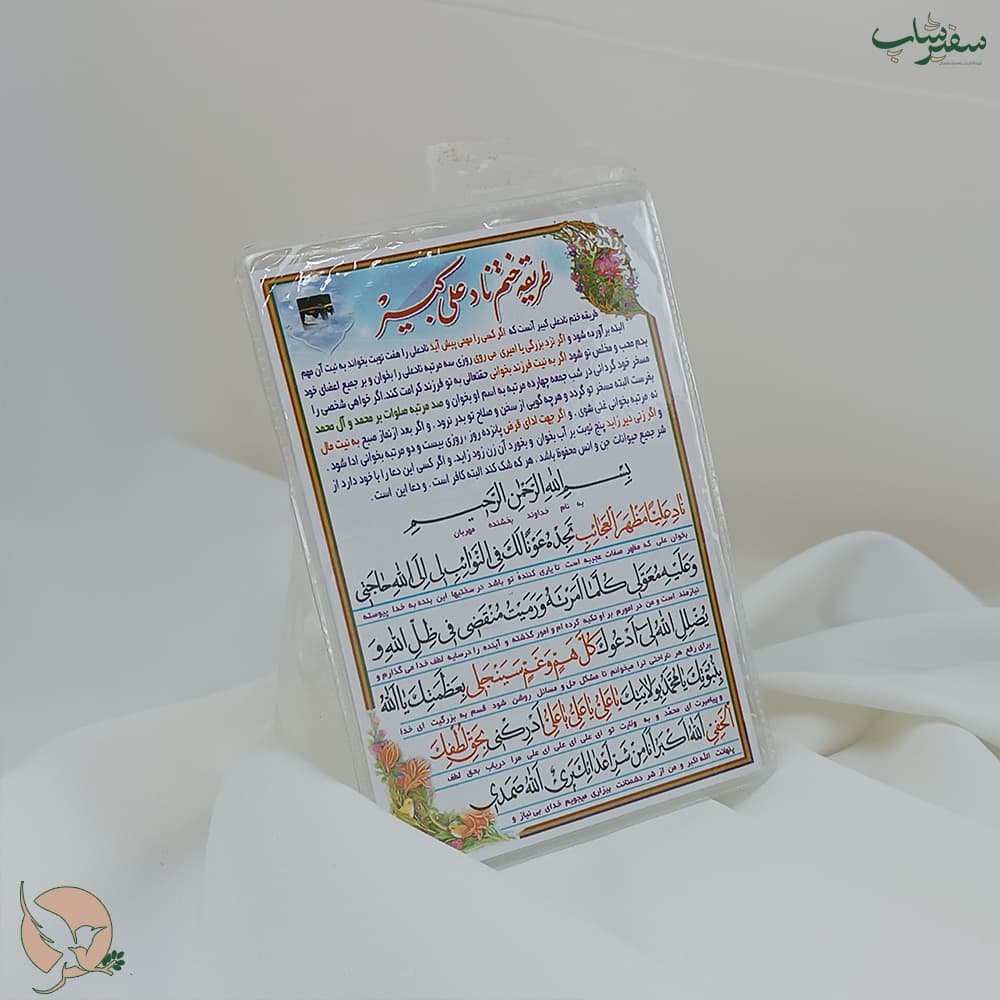 سفیرشاپ
طریقه ختم ناد علی کبیر
طریقه ختم نادعلی کبیر آنست که اگر کسی را مهمی پیش آید نادعلی را هفت نوبت بخواند به نیت آن مهم
البته برآورده شود و اگر نزد بزرگی یا امیری می روی روزی سه مرتبه نادعلی را بخوان و بر جمیع اعضای خود
بدم محب و مخلص تو شود اگر به نیت فرزند بخوانی حقتعالی به تو فرزند کرامت کند. اگر خواهی شخصی را
مسخر خود گردانی در شب جمعه چهارده مرتبه به اسم او بخوان و صد مرتبه صلوات بر محمد و آل محمد
بفرست البته مسخر تو گردد و هرچه گویی از سخن و صلاح تو بدر نرود . و اگر بعد ازنماز صبح به نیت مال
نه مرتبه بخوانی غنی شوی . و اگر جهت ادای قرض پانزده روز ، روزی بیست و دو مرتبه بخوانی ادا شود .
و اگر زنی دیر زاید پنج نوبت بر آب بخوان و بخورد آن زن زود زاید. و اگر کسی این دعا را با خود دارد از
شر جمیع حیوانات جن و انس محفوظ باشد . هر که شک کند البته کافر است . و دعا این است .
بسم الله الرحمن الرحیم
به نام خداوند بخشنده مهربان
ناد علیا مظهر العجائب تجده عونا لک فی النوائب لی الی الله حاجتی
بخوان علی که مظهر صفات عجیبه است تا یاری کنندۀ تو باشد در سختیها این بنده به خدا پیوسته
و علیه معولی کلما امرته و رمیت منقضی فی ظل الله و
نیازمند است و من در امورم بر او تکیه کرده ام و امور گذشته و آینده را درسایه لطف خدا می گذارم و
یضلل الله لی ادعوک کل هم و غم سینجلی بعظمتک یا الله
برای رفع هر ناراحتی ترا میخوانم تا مشکل حل و مسائل روشن شود قسم به بزرگیت ای خدا
بنبوتک یا محمد بولایتک یا علی یا علی یا علی ادرکنی بحق لطفک
و پیامبریت ای محمد و به ولایت تو ای علی ای علی ای علی مرا دریاب بحق لطف
الخفی الله اکبر انا من شر اعدائک بریء الله صمدی
پنهانت الله اکبر و من از شر دشمنانت بیزاری میجویم خدای بی نیاز و